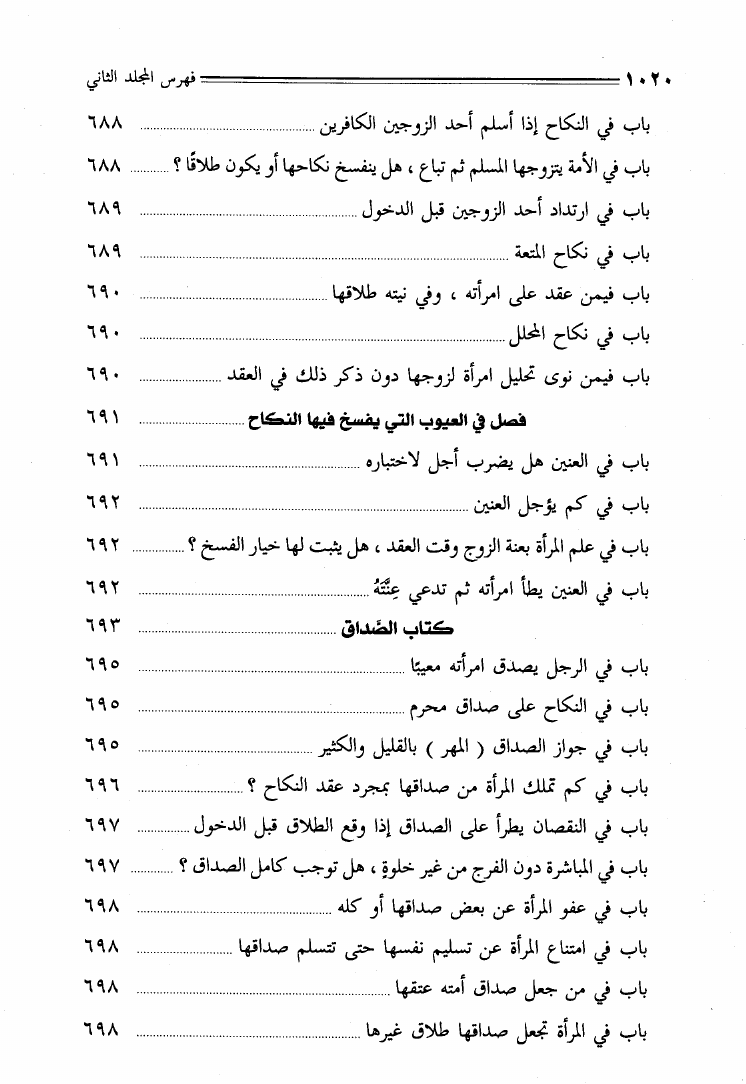 ١٠٢٠ فهرس المجلد الثاني
باب في النكاح إذا أسلم أحد الزوجين الكافرين ٦٨٨
باب في الأمة يتزوجها المسلم ثم تباع ، هل ينفسخ نكاحها أو يكون طلاقًا ؟ ٦٨٨
باب في ارتداد أحد الزوجين قبل الدخول ٦٨٩
باب في نكاح المتعة ٦٨٩
باب فيمن عقد على امرأته ، وفي نيته طلاقها ٦٩٠
باب في نكاح المحلل ٦٩٠
باب فيمن نوى تحليل امرأة لزوجها دون ذكر ذلك في العقد ٦٩٠
فصل في العيوب التي يفسخ فيها النكاح ٦٩١
باب في العنين هل يضرب أجل لاختباره ٦٩١
باب في كم يؤجل العنين ٦٩٢
باب في علم المرأة بعنة الزوج وقت العقد ، هل يثبت لها خيار الفسخ ؟ ٦٩٢
باب في العنين يطأ امرأته ثم تدعي عِنَّتَهُ ٦٩٢
كتاب الصَّداق ٦٩٣
باب في الرجل يصدق امرأته معيبًا ٦٩٥
باب في النكاح على صداق محرم ٦٩٥
باب في جواز الصداق ( المهر ) بالقليل والكثير ٦٩٥
باب في كم تملك المرأة من صداقها بمجرد عقد النكاح ؟ ٦٩٦
باب في النقصان يطرأ على الصداق إذا وقع الطلاق قبل الدخول ٦٩٧
باب في المباشرة دون الفرج من غير خلوةٍ ، هل توجب كامل الصداق ؟ ٦٩٧
باب في عفو المرأة عن بعض صداقها أو كله ٦٩٨
باب في امتناع المرأة عن تسليم نفسها حتى تتسلم صداقها ٦٩٨
باب في من جعل صداق أمته عتقها ٦٩٨
باب في المرأة تجعل صداقها طلاق غيرها ٦٩٨